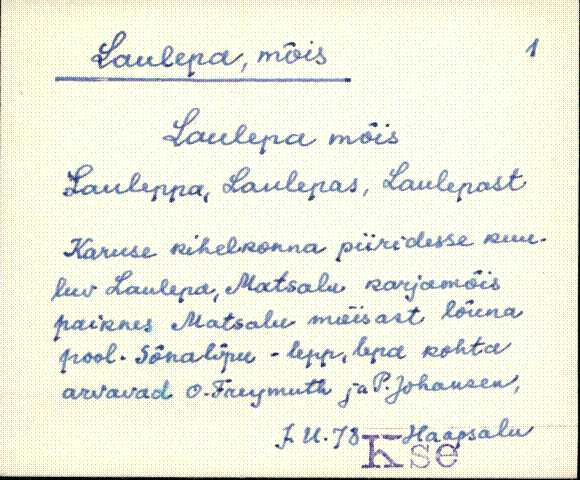 Laulepa, mõis
1
Laulepa mõis
Lauleppa, Laulepas, Laulepast
Karuse kihelkonna piiridesse kuu-
luv Laulepa, Matsalu karjamõis
paiknes Matsalu mõisast lõuna
pool. Sõnalõpu - lepp, lepa kohta
arvavad O. Freymuth ja P. Johansen,
J.U. 78 Haapsalu
Kse